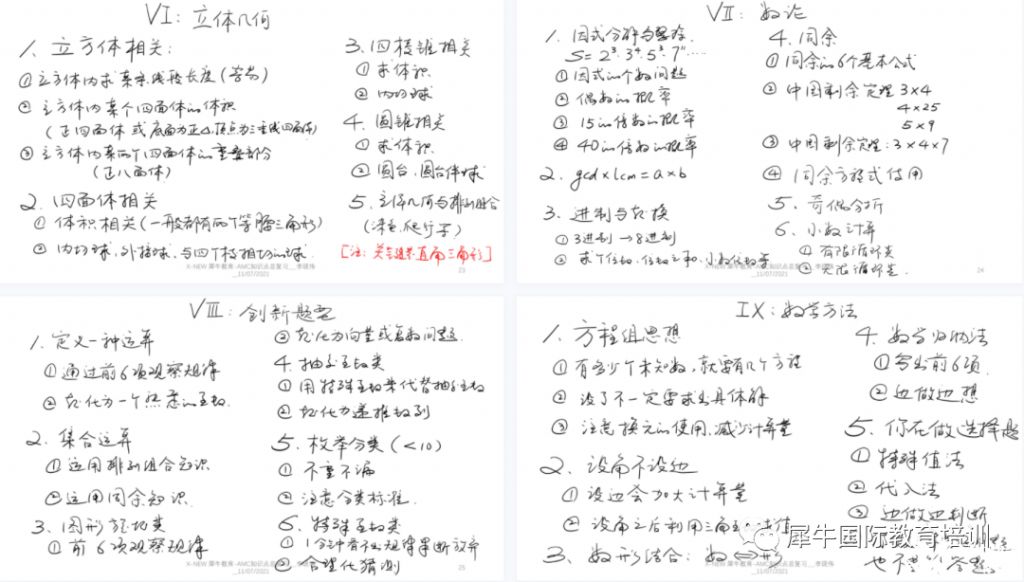 VI: 立体几何
1. 立方体相关:
① 立方体内求某条线段长度(容易)
② 立方体内某个四面体的体积
(正四面体或底面为正△,顶点为三垂线四面体)
③ 立方体内某两个四面体的重叠部分
(正八面体)
2. 四面体相关
① 体积相关(一般都有两个等腰三角形)
② 内切球,外接球,与四个棱相切的球
3. 四棱锥相关
① 求体积
② 内切球
4. 圆锥相关
① 求体积
② 圆台,圆台伴球
5. 立体几何与排列组合
(涂色,爬行等)
[注: 关键是求直角三角形]
X-NEW 犀牛教育-AMC知识点总复习__李骁伟
__11/07/2021
23
VII: 数论
1. 因式分解与幂等
S=2³·3⁴·5³·7⁴……
① 因式的个数问题
② 偶数的概率
③ 15的倍数的概率
④ 40的倍数的概率
2. gcd×lcm=a×b
3. 进制与转换
① 3进制→8进制
② 求个位数,位数之和,小数位数等
4. 同余
① 同余的6个基本公式
② 中国剩余定理 3×4
4×25
5×9
③ 中国剩余定理: 3×4×7
④ 同余方程式使用
5. 奇偶分析
6. 小数计算
① 有限循环类
② 无限循环类
X-NEW 犀牛教育-AMC知识点总复习__李骁伟
__11/07/2021
24
VIII: 创新题型
1. 定义一种运算
① 通过前6项观察规律
② 转化为一个熟悉的函数.
2. 集合运算
① 运用排列组合知识
② 运用同余知识.
3. 图形旋转类
① 前6项观察规律
② 转化为向量或复数问题.
4. 抽象函数类
① 用特殊函数来代替抽象函数
② 转化为递推数列
5. 枚举分类(<10)
① 不重不漏
② 注意分类标准.
6. 特殊函数类
① 1分钟看不出规律果断放弃
② 合理化猜测
X-NEW 犀牛教育-AMC知识点总复习__李骁伟
__11/07/2021
25
IX: 数学方法
1. 方程组思想
① 有多少个未知数,就要有几个方程
② 设了不一定要求出具体解
③ 注意换元的使用,减少计算量
2. 设角不设边
① 设边会加大计算量
② 设角之后利用三角
3. 数形结合: 数⇔形
4. 数学归纳法
① 写出前6项.
② 边做边想
5. 你在做选择题
① 特殊值法
② 代入法
③ 边做边判断
犀牛国际教育培训